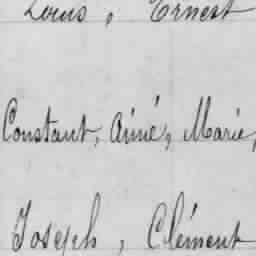 Louis, Ernest
Constant, Aimé, Marie,
Joseph, Clément